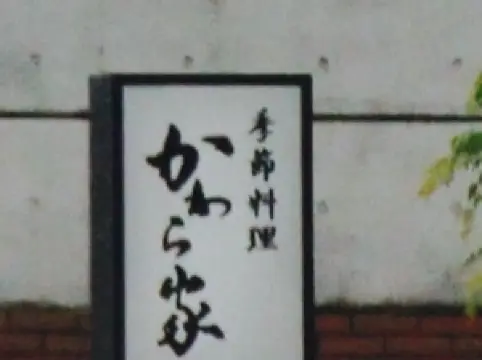 季節料理
かわら家